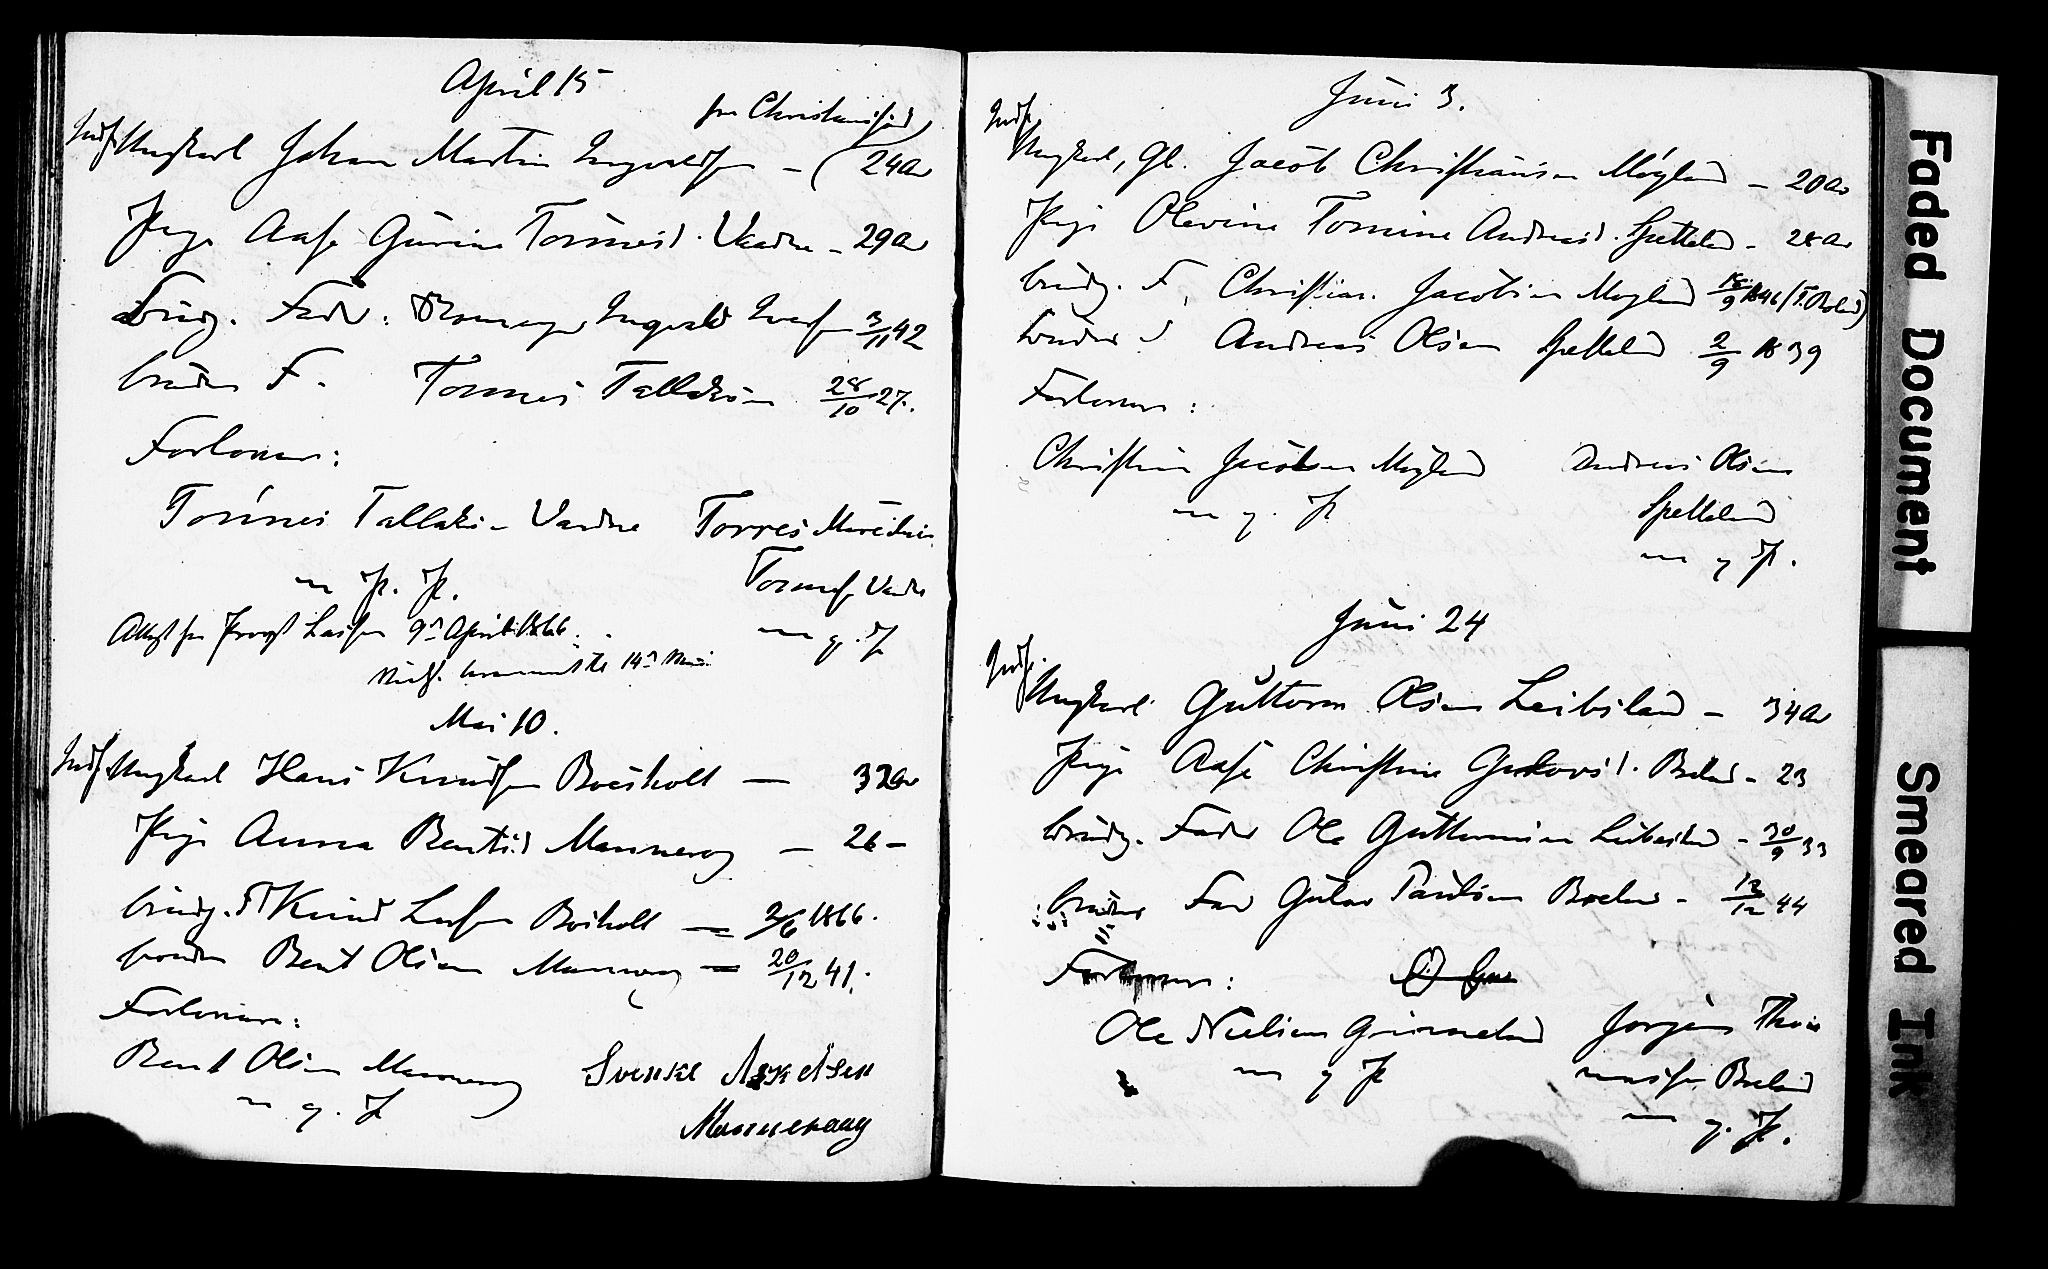 April 15
fra Christiansand
Indf. Ungkarl Johan Martin Ingvaldsen – 24 Aar
Pige Aase Gurine Tønnesd. Vardne – 29 Aar
brudg. Fader: Ingvald 3/11 42
brudens F. Tønnes Tallaksen 28/10 27.
Forlovere:
Tønnes Tallaksen Vardne
m. p. P.
Torres
Vardne
m. p. P
Attest fra Provst 9de April 1866.
14de Mai
Mai 10.
Indf. Ungkarl Hans Knudsen Boisholt — 32 Aar
Pige Anna Bentsd. Mannerog — 26 –
brudg. F Knud Boisholt — 2/6 1866.
bruden Bent Olsen Mannerog — 20/12 41.
Forlovere:
Bent Olsen Mannerog
m. p. P
Svenke Askelsen
Manneraag
Juni 3.
Indf.
Ungkarl, Gl. Jacob Christiansen Møgland – 20 Aar
Pige Olevine Tomine Andreasd. Spetteland – 28 Aar
brudg. F. Christian Jacobsen Møgland 18/9 1846
brudens F Andreas Olsen Spetteland 2/9 1839
Forlovere:
Christian Jacobsen Møgland
m p. P
Andreas Olsen
Spetteland
m p P.
Juni 24
Indf.
Ungkarl Guttorm Olsen Leibsland – 34 Aar
Pige Aase Christine Gulovsd. – 23
brudg. Fader Ole Guttormsen – 30/9 33
brudens Fader Paulsen – 13/12 44
Forlovere:
Ole Nielsen Grimmeland
m p P
Jørgen
m p. P.
Faded Document
Smeared Ink